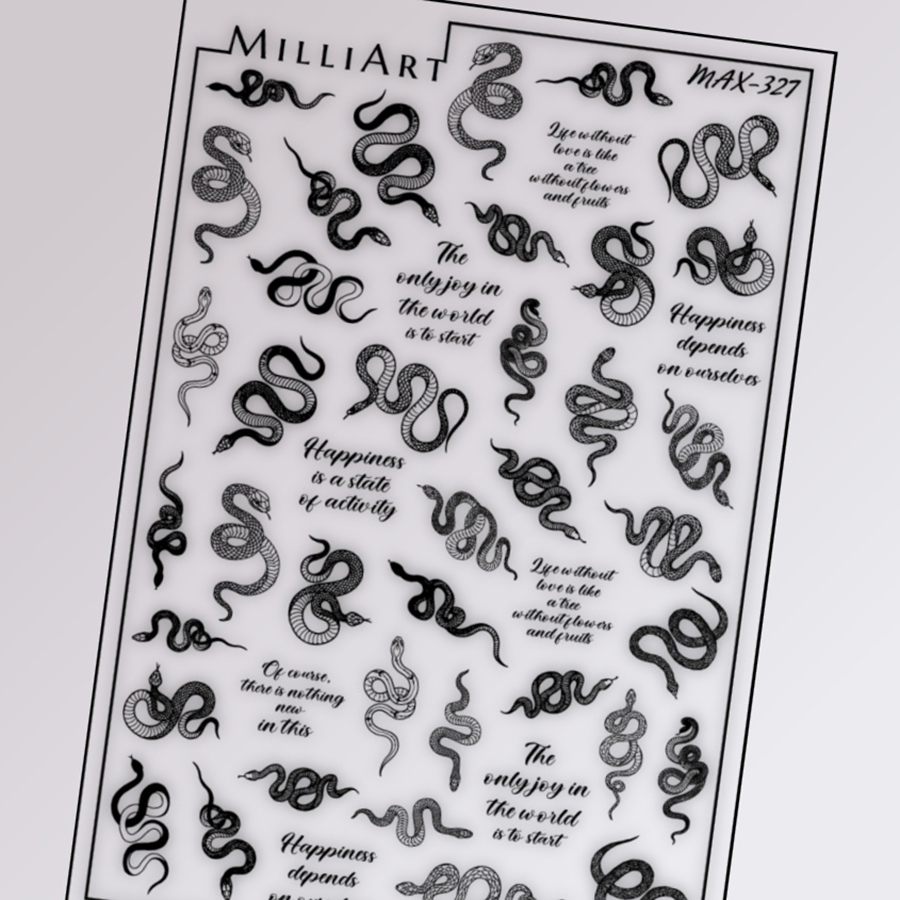 MILLIART
MAX-327
Life without
love is like
a tree
without flowers
and fruits
The
only joy in
the world
is to start
Happiness
depends
on ourselves
Happiness
is a state
of activity
Life without
love is like
a tree
without flowers
and fruits
Of course,
there is nothing
new
in this
The
only joy in
the world
is to start
Happiness
depends